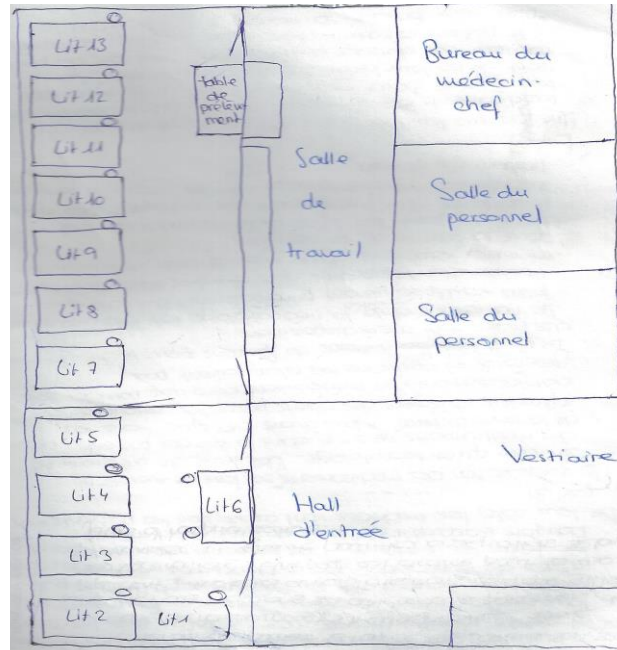 Lit 13
Lit 12
Lit 11
Lit 10
Lit 9
Lit 8
Lit 7
Lit 5
Lit 4
Lit 3
Lit 2
Lit 1
Lit 6
table
de
prélève-
ment
Salle
de
travail
Bureau du
médecin-
chef
Salle du
personnel
Salle du
personnel
Vestiaire
Hall
d'entreé